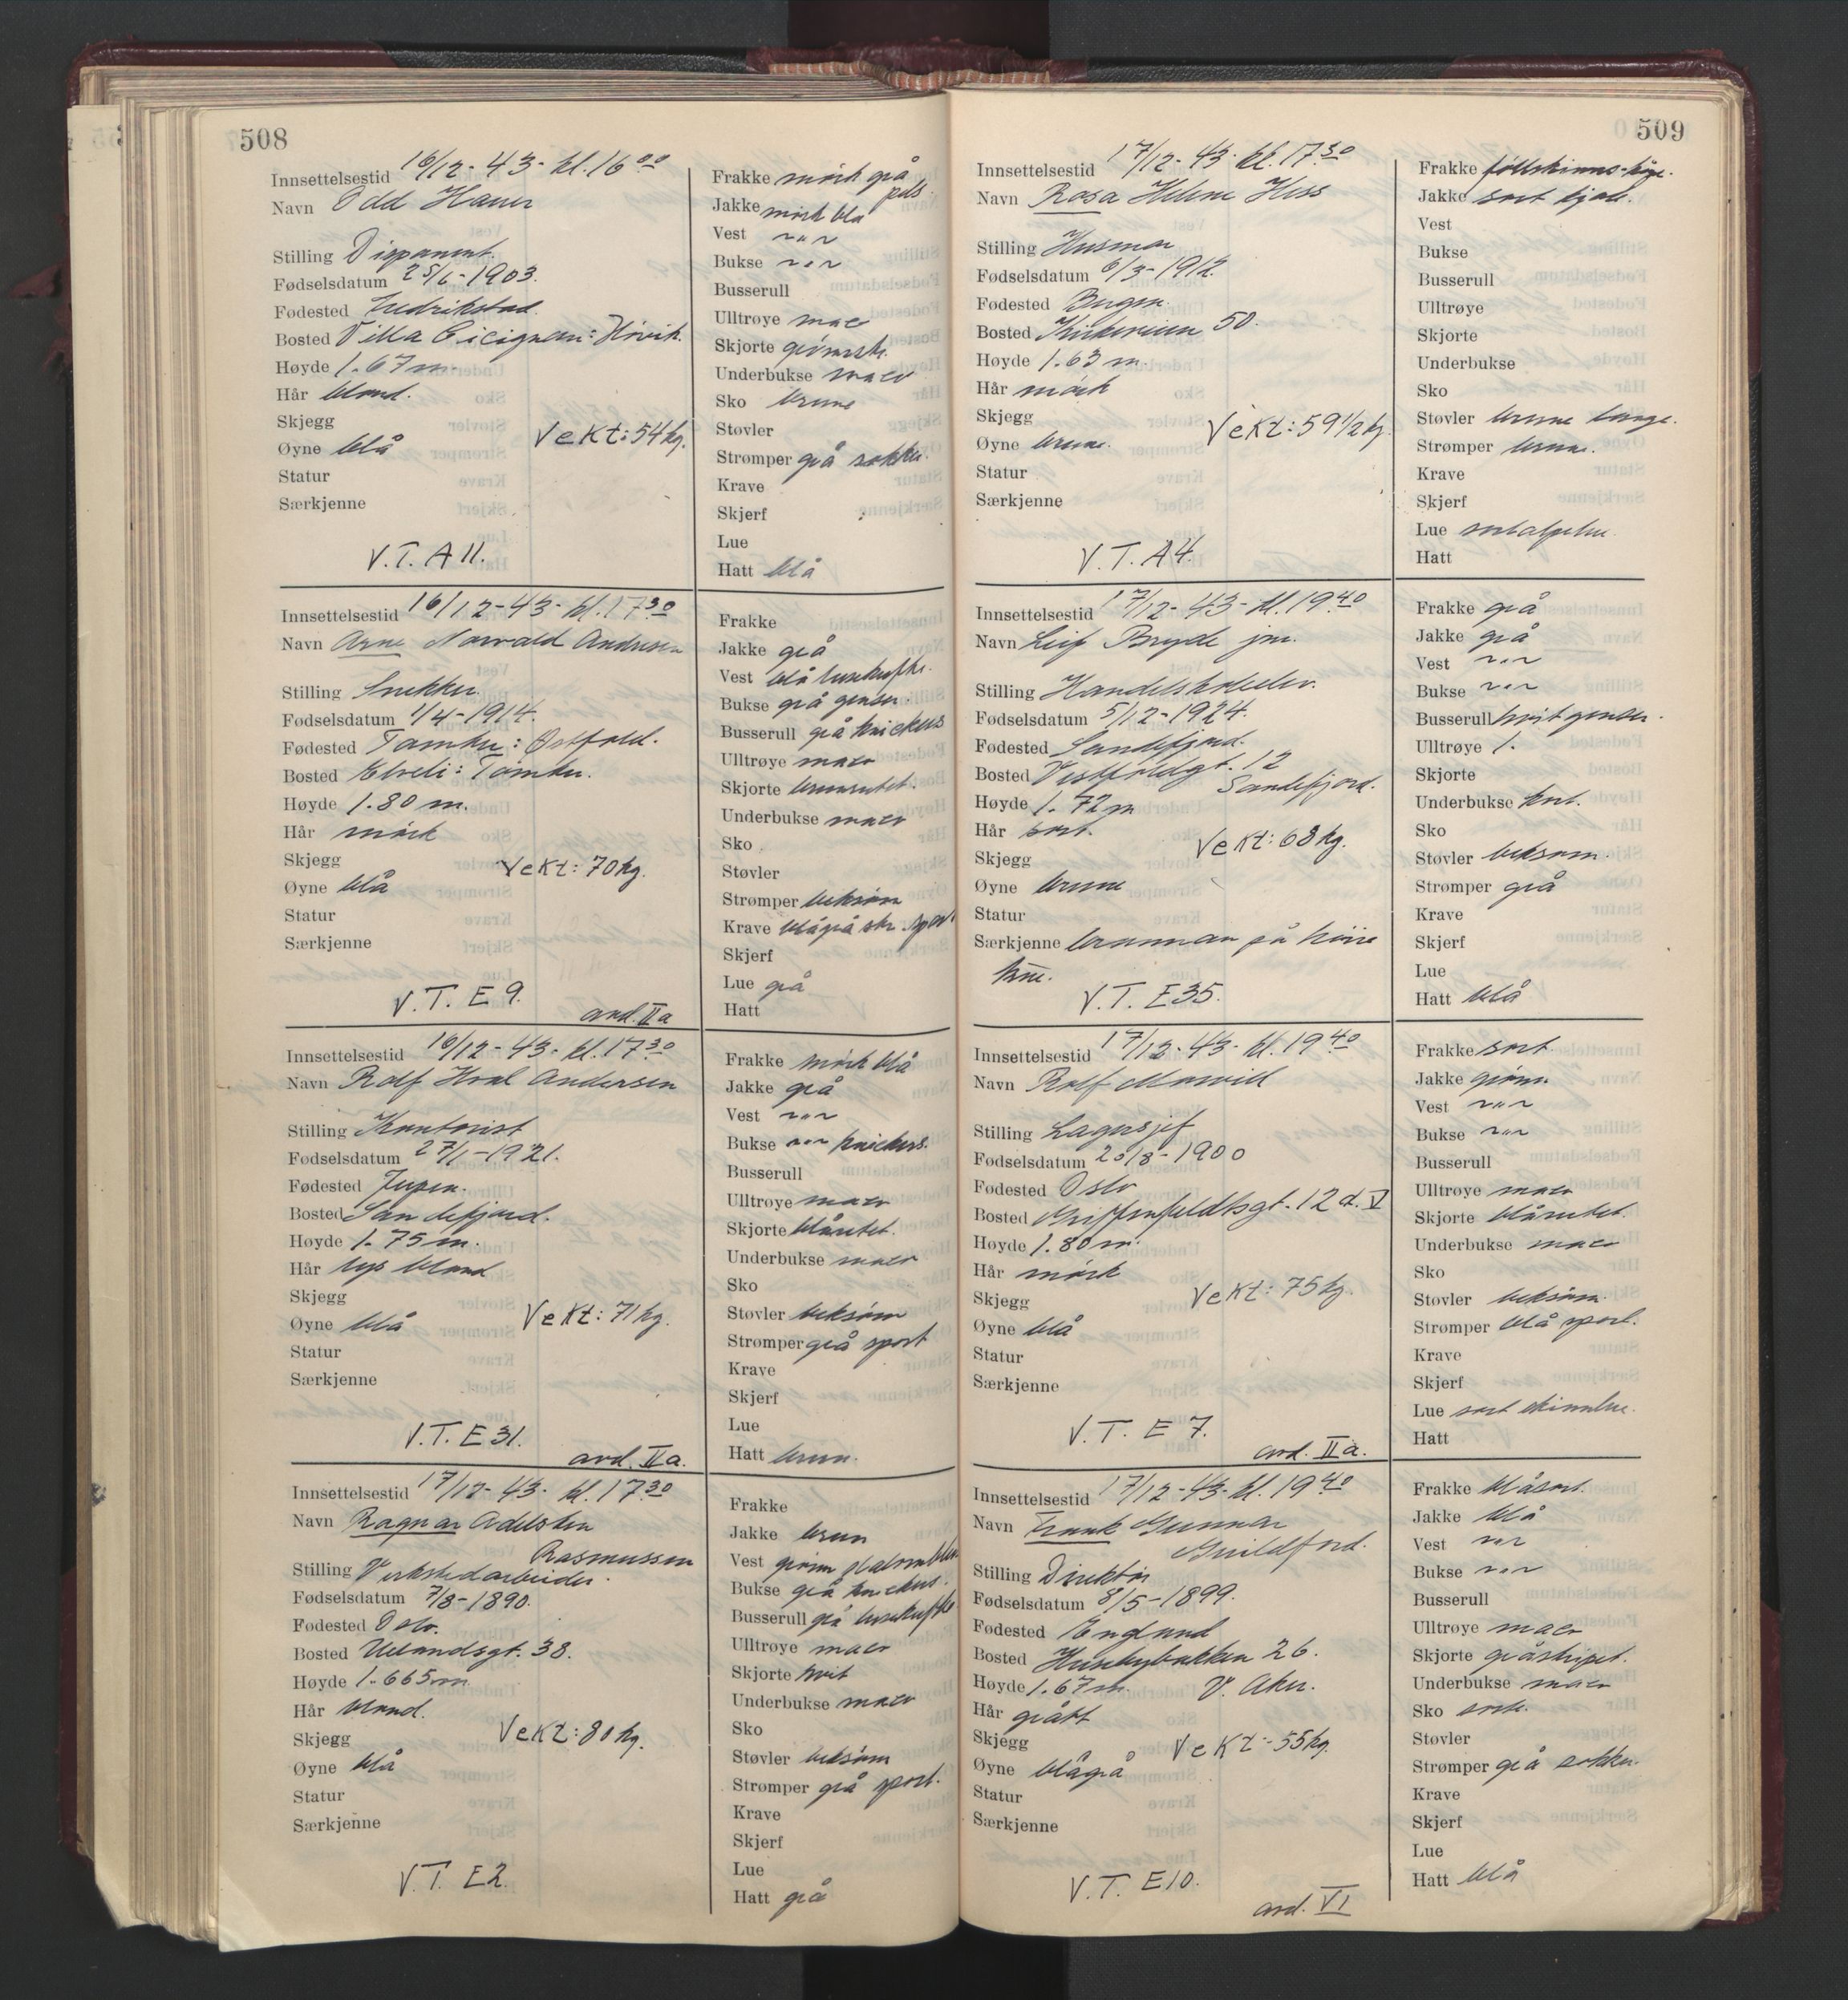 508
Innsettelsestid 16/12-43- kl. 16 00
Navn Odd Hauer
Stilling Disponent.
Fødselsdatum 25/6-1903.
Fødested Fredrikstad.
Bosted Villa Høvik.
Høyde 1.67 m.
Hår blond.
Skjegg
Øyne blå
Vekt: 54 kg.
Statur
Særkjenne
V.T. A 11.
Frakke mörk grå pels.
Jakke mörk blå
Vest ~"~
Bukse ~"~
Busserull
Ulltrøye maco
Skjorte
Underbukse maco
Sko brune
Støvler
Strømper grå sokker.
Krave
Skjerf
Lue
Hatt blå
Innsettelsestid 16/12-43- kl. 17 30
Navn Arne Norvald Andresen
Stilling Snekker.
Fødselsdatum 1/4-1914.
Fødested Tomter: Østfold.
Bosted Elveli: Tomter.
Høyde 1.80 m.
Hår mörk
Skjegg
Øyne blå
Vekt: 70 kg.
Statur
Særkjenne
V.T. E 9.
avd. IIa
Frakke
Jakke grå
Vest blå lusekufte.
Bukse grå genser.
Busserull grå knickers
Ulltrøye maco
Skjorte brunrutet.
Underbukse maco
Sko
Støvler
Strømper beksöm
Krave blågrå str. sport
Skjerf
Lue grå
Hatt
Innsettelsestid 16/12-43- kl. 17 30
Navn Rolf Hval Andersen
Stilling Kontorist
Fødselsdatum 27/1-1921.
Fødested
Bosted Sandefjord.
Høyde 1.75 m.
Hår lys blond
Skjegg
Øyne blå
Vekt: 71 kg.
Statur
Særkjenne
V.T. E 31.
avd. IIa.
Frakke mörk blå
Jakke grå
Vest ~"~
Bukse ~"~ knickers.
Busserull
Ulltrøye maco
Skjorte blårutet.
Underbukse maco
Sko
Støvler beksöm
Strømper grå sport
Krave
Skjerf
Lue
Hatt brun.
Innsettelsestid 17/12-43- kl. 17 30
Navn Ragnar Adelsten
Rasmussen
Stilling Verkstedarbeider.
Fødselsdatum 7/8-1890.
Fødested Oslo.
Bosted Uelandsgt. 38.
Høyde 1.665 m
Hår blond.
Skjegg
Øyne blå
Vekt: 80 kg.
Statur
Særkjenne
V.T. E 2.
Frakke
Jakke brun
Vest grönn
Bukse grå knickers.
Busserull grå lusekufte
Ulltrøye maco
Skjorte hvit
Underbukse maco
Sko
Støvler beksöm
Strømper grå sport.
Krave
Skjerf
Lue
Hatt grå
509
Innsettelsestid 17/12-43- kl. 17 30
Navn Rosa Helene Hess
Stilling Husmor
Fødselsdatum 6/3-1912.
Fødested Bergen.
Bosted Kirkeveien 50.
Høyde 1.63 m.
Hår mörk
Skjegg
Øyne brune.
Vekt: 59 1/2 kg
Statur
Særkjenne
V.T. A 4.
Frakke
Jakke sort kjole.
Vest
Bukse
Busserull
Ulltrøye
Skjorte
Underbukse
Sko
Støvler brune lange.
Strømper brune.
Krave
Skjerf
Lue
Hatt
Innsettelsestid 17/12-43- kl. 19 40
Navn Leif Bryde jnr.
Stilling Handelskoleelev.
Fødselsdatum 5/12-1924.
Fødested Sandefjord.
Bosted Vestfoldgt. 12
Sandefjord.
Høyde 1.72 m
Hår sort.
Skjegg
Øyne brune
Vekt: 68 kg.
Statur
Særkjenne på höire
kne.
V.T. E 35.
Frakke grå
Jakke grå
Vest ~"~
Bukse ~"~
Busserull hvit genser.
Ulltrøye 1.
Skjorte
Underbukse hvit.
Sko
Støvler beksöm.
Strømper grå
Krave
Skjerf
Lue
Hatt blå
Innsettelsestid 17/12-43- kl. 19 40
Navn Rolf
Stilling Lagersjef
Fødselsdatum 20/8-1900
Fødested Oslo
Bosted Griffenfeldtsgt. 12 d. V
Høyde 1.80 m.
Hår mörk
Skjegg
Øyne blå
Vekt: 75 kg.
Statur
Særkjenne
V.T. E 7.
avd. IIa.
Frakke sort
Jakke grönn.
Vest ~"~
Bukse ~"~
Busserull
Ulltrøye maco
Skjorte blårutet.
Underbukse maco
Sko
Støvler beksöm.
Strømper blå sport.
Krave
Skjerf
Lue sort skinnlue.
Hatt
Innsettelsestid 17/12-43- kl. 19 40
Navn Frank Gunnar
Guildford.
Stilling Direktör
Fødselsdatum 8/5-1899.
Fødested England
Bosted Husebybakken 26.
V. Aker.
Høyde 1.67 m.
Hår grått
Skjegg
Øyne blågrå
Vekt- 55 kg.
Statur
Særkjenne
V.T. E 10.
avd. VI
Frakke blåsort.
Jakke blå
Vest ~"~
Bukse ~"~
Busserull
Ulltrøye maco
Skjorte gråstripet.
Underbukse maco
Sko sorte.
Støvler
Strømper grå sokker.
Krave
Skjerf
Lue
Hatt blå